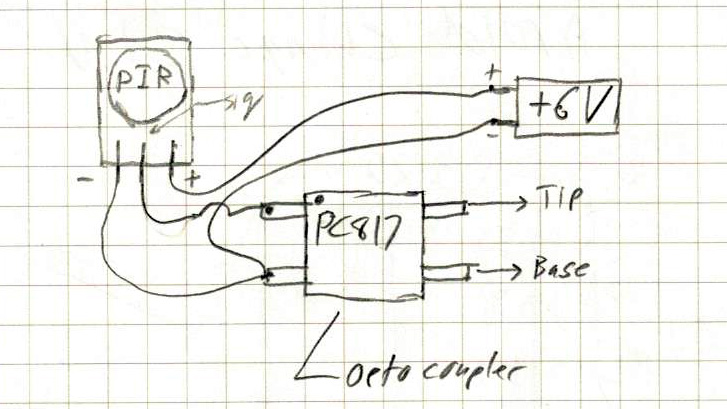 PIR
sig
- +
+
+6V
-
PC817
TIP
Base
optocoupler